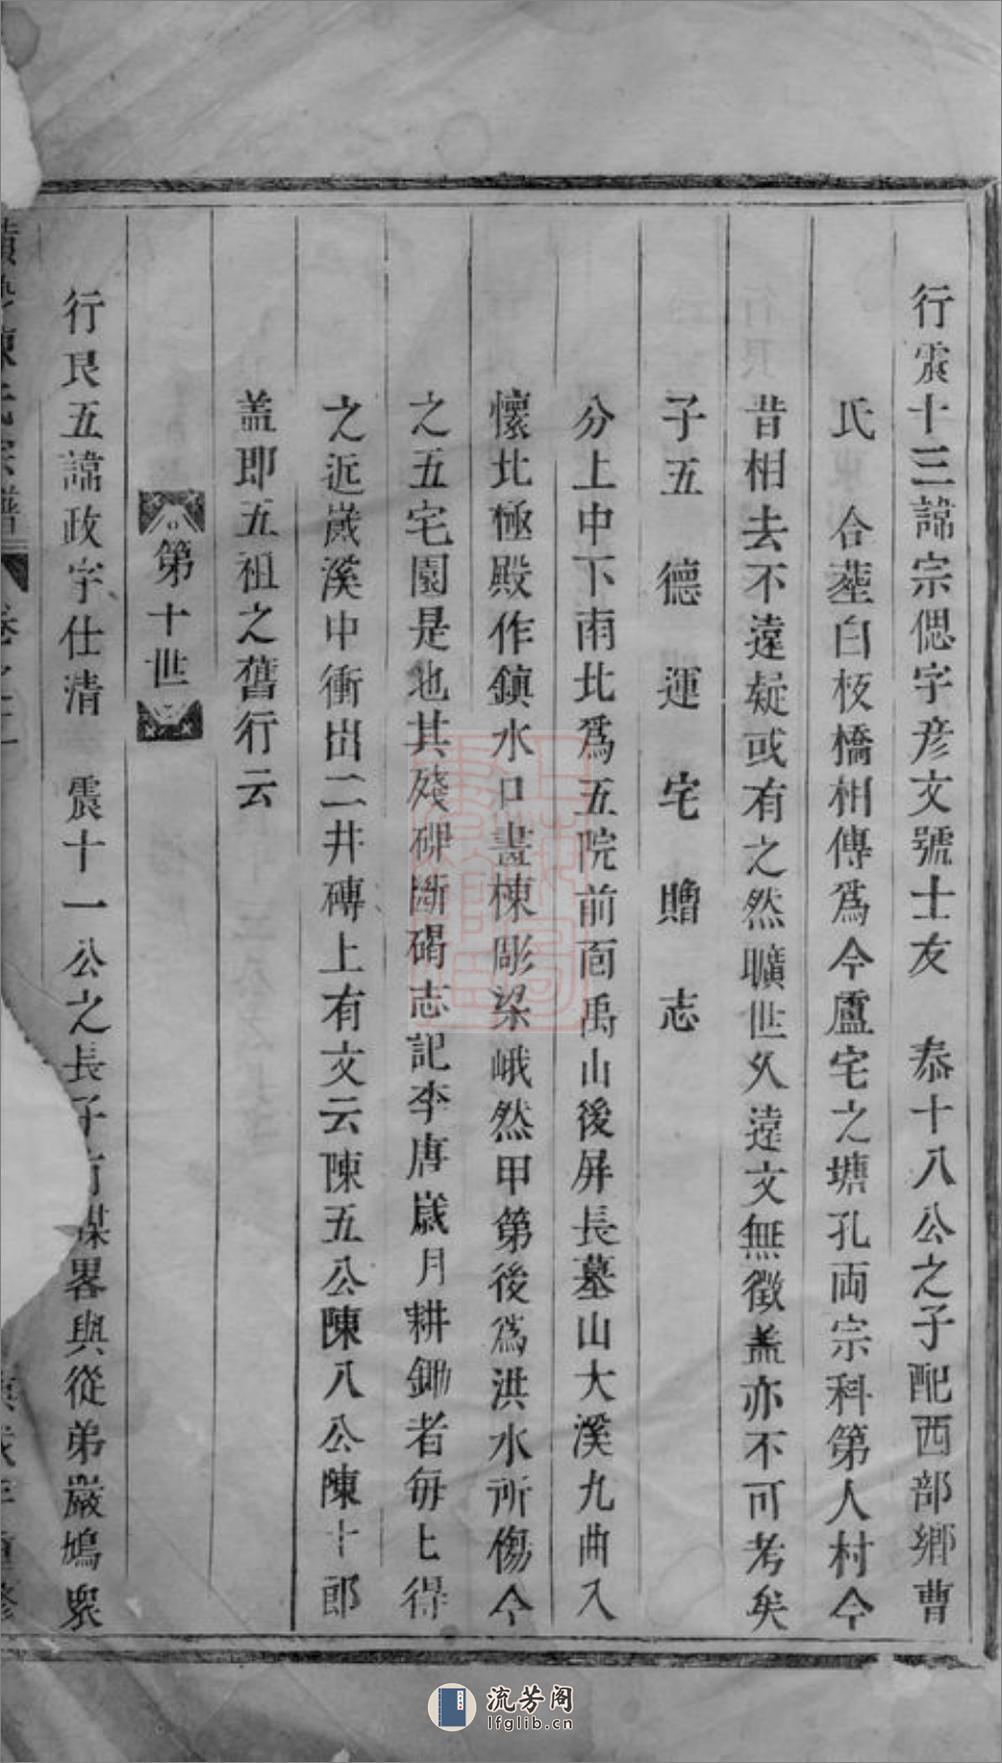 行震十三諱宗偲字彦文號士友 恭十八公之子配西部鄉曹
氏 合塟白板橋相傳爲今盧宅之塘孔両宗科第人村今
昔相去不遠疑或有之然曠世久遠文無徵盖亦不可考矣
子五 德 運 宅 贍 志
分上中下南北爲五院前面禹山後屏長墓山大溪九曲入
懷北極殿作鎮水口畫棟彫梁峨然甲第後爲洪水所傷今
之五宅園是也其殘碑斷碣志記李唐歲月耕鋤者每上得
之近嵗溪中衝出二井磚上有文云陳五公陳八公陳十郎
盖即五祖之舊行云
第十世
行艮五諱政字仕清 震十一公之長子 謀畧與從弟嚴鳩衆
陳氏宗譜 卷之二 重修
流芳阁
lfglib.cn